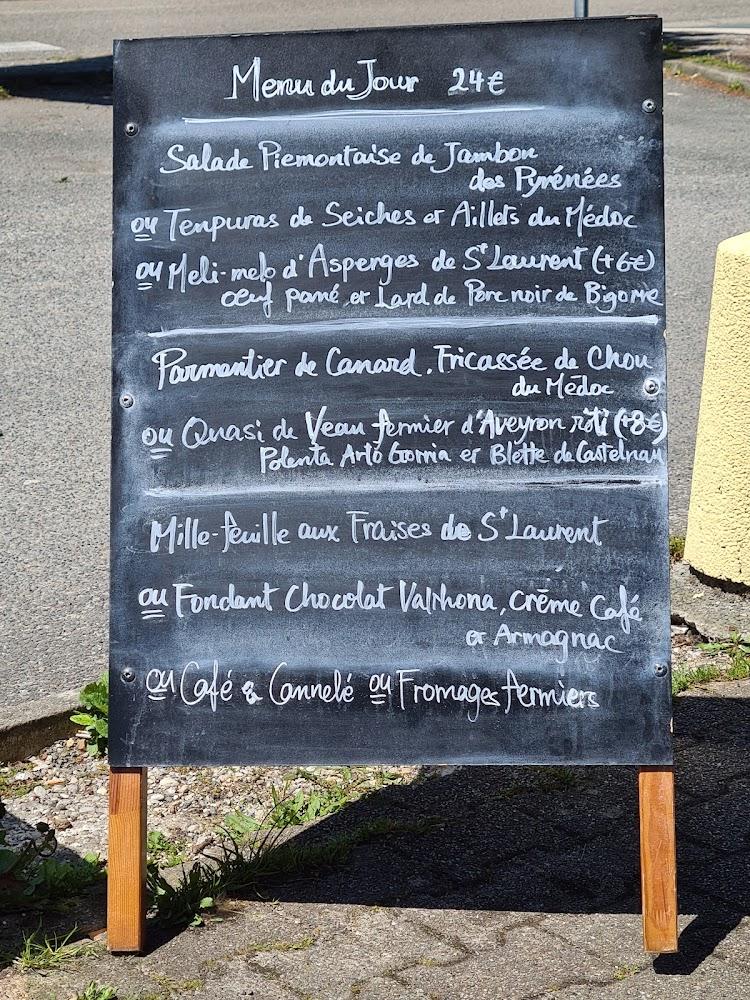 Menu du Jour 24€
Salade Piemontaise de Jambon
des Pyrénées
ou Tempuras de Seiches et Aillets du Médoc
ou Meli-melo d'Asperges de St Laurent (+6€)
œuf pané et Lard de Porc noir de Bigorre
Parmentier de Canard, Fricassée de Chou
du Médoc
ou Quasi de Veau fermier d'Aveyron rôti (+8€)
Polenta Arto Gorria et Blette de Castelnau
Mille-feuille aux Fraises de St Laurent
ou Fondant Chocolat Valrhona, crème Café
et Armagnac
ou Café & Cannelé ou Fromages fermiers